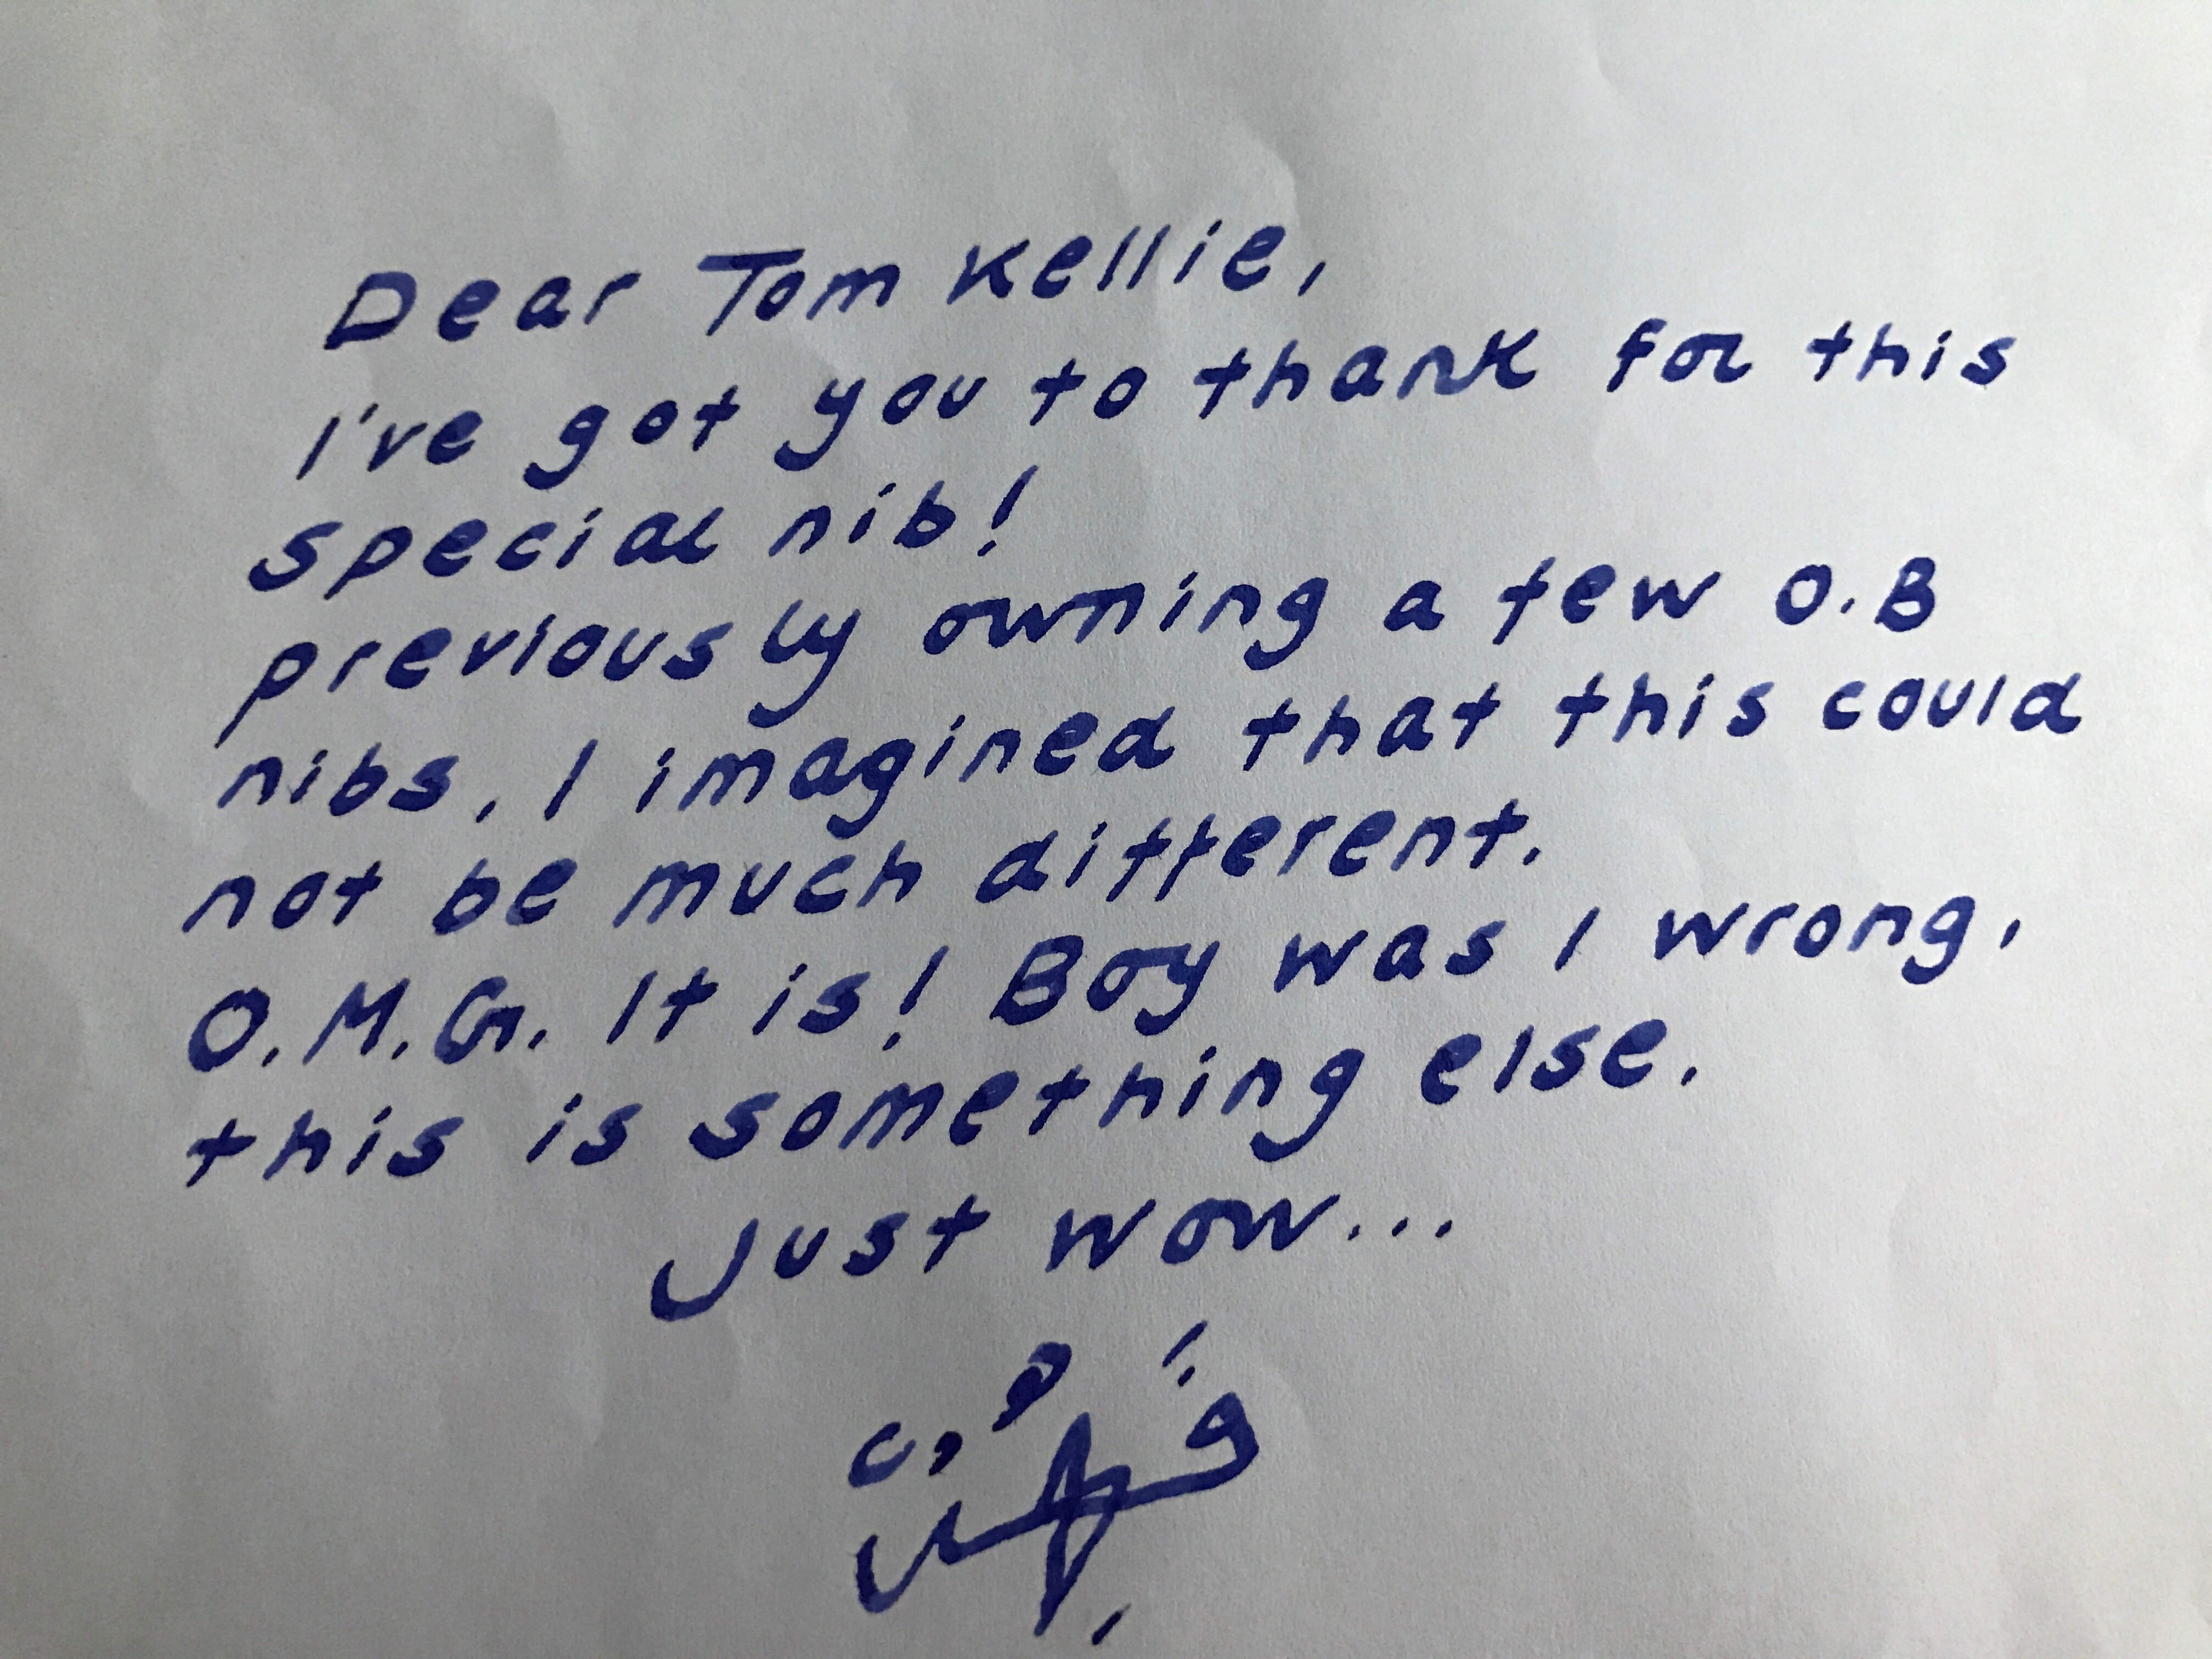 Dear Tom Kellie,
I've got you to thank for this
special nib!
previously owning a few O.B
nibs, I imagined that this could
not be much different.
O.M.G. It is! Boy was I wrong,
this is something else.
Just wow...